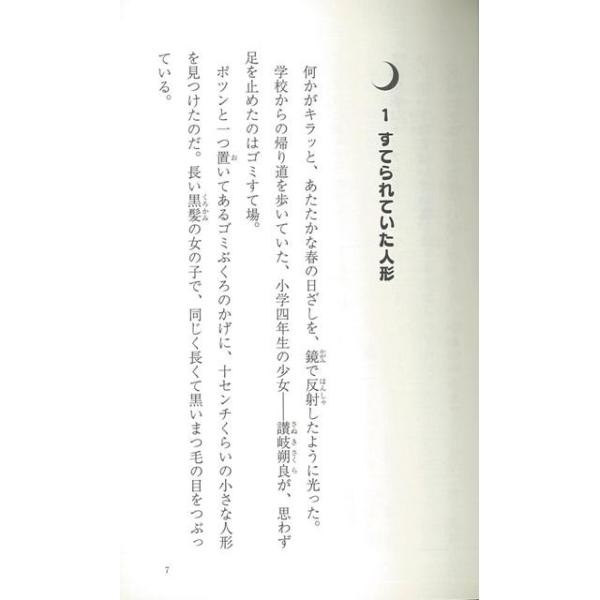 1 すてられていた人形
何かがキラッと、あたたかな春の日ざしを、鏡で反射したように光った。
学校からの帰り道を歩いていた、小学四年生の少女――讃岐朔良が、思わず
足を止めたのはゴミすて場。
ポツンと一つ置いてあるゴミぶくろのかげに、十センチくらいの小さな人形
を見つけたのだ。長い黒髪の女の子で、同じく長くて黒いまつ毛の目をつぶっ
ている。
かがみ
はんしゃ
さぬきさくら
お
くろかみ
7